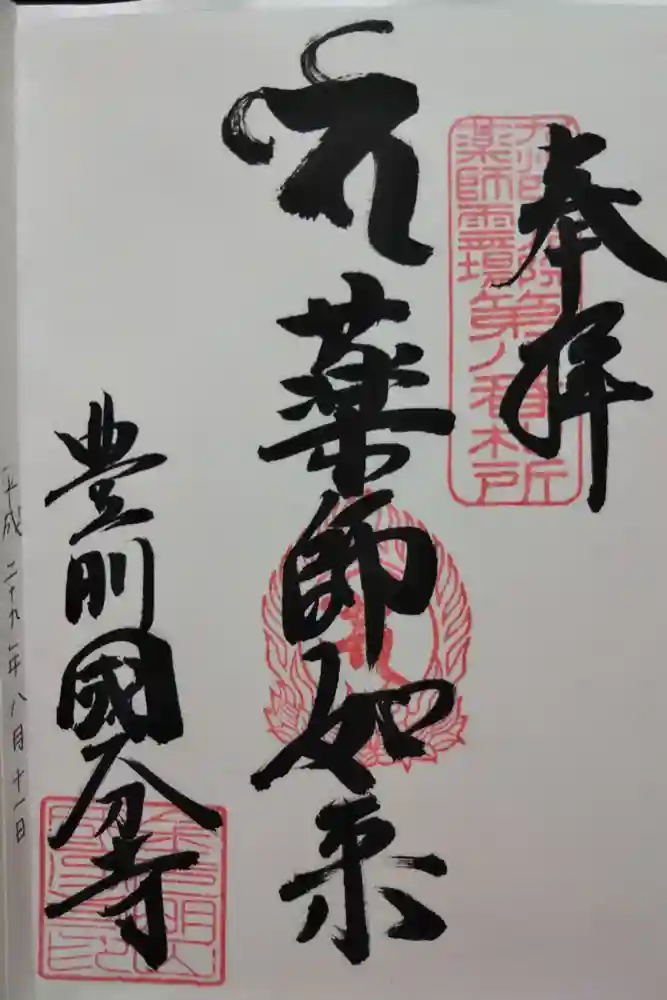 奉拝
九州四十九院
薬師霊場
第八番札所
薬師如来
豊前國分寺
平成二十九年八月十一日